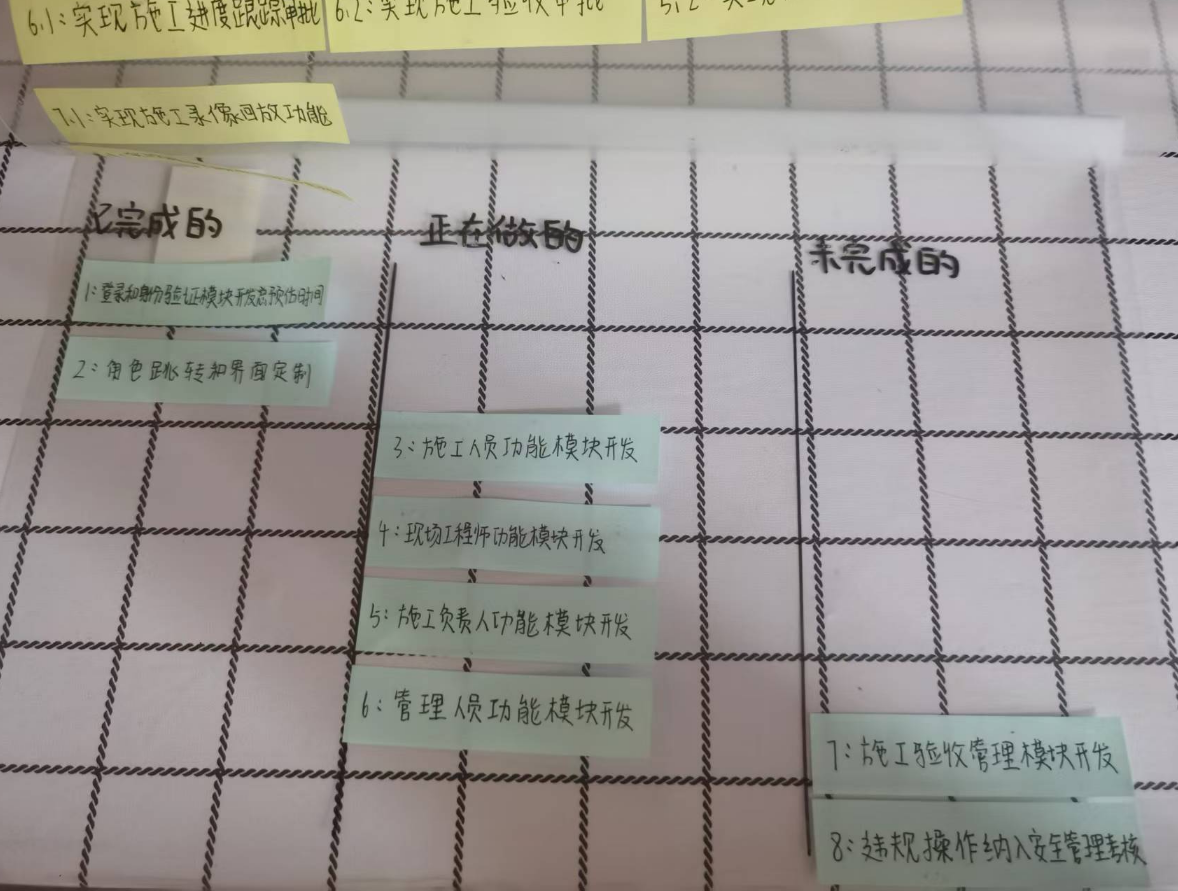 6.1：实现施工进度跟踪审批
6.2：实现施工验收审批
7.1：实现施工录像回放功能
已完成的
正在做的
未完成的
1：登录和身份验证模块开发总预估时间
2：角色跳转和界面定制
3：施工人员功能模块开发
4：现场工程师功能模块开发
5：施工负责人功能模块开发
6：管理人员功能模块开发
7：施工验收管理模块开发
8：违规操作纳入安全管理考核